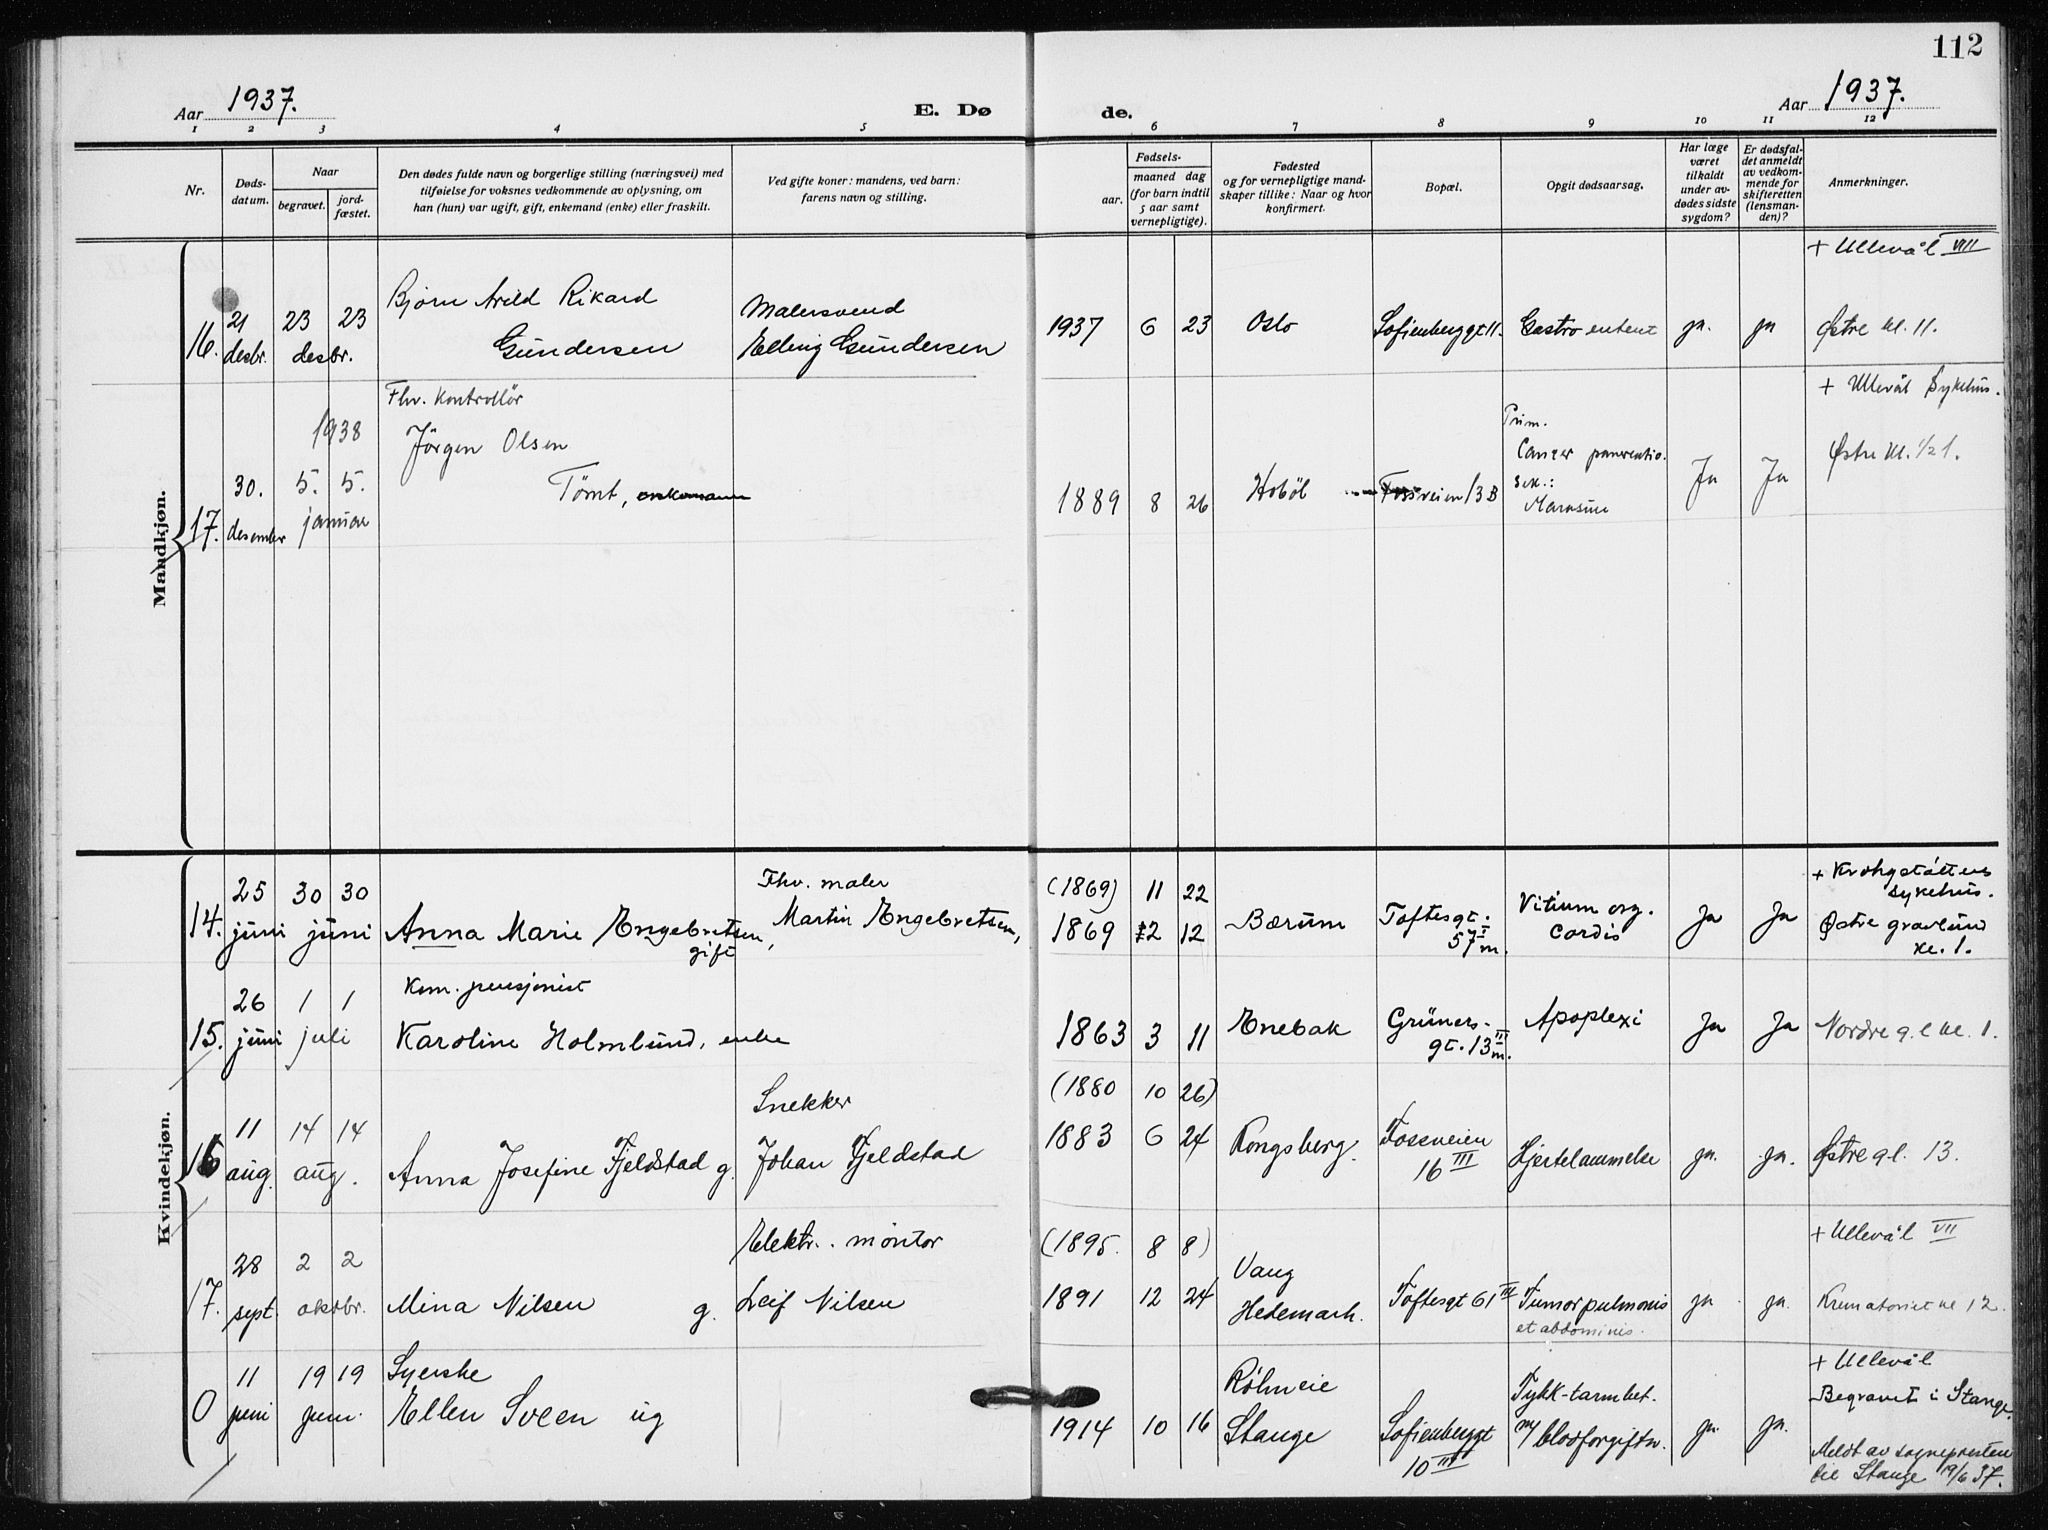 112
Aar 1937.
E. Dø de.
Aar 1937.
1 2 3 4 5 6 7 8 9 10 11 12
Nr.
Døds-
datum.
Naar
begravet.
jord-
fæstet.
Den dødes fulde navn og borgerlige stilling (næringsvei) med
tilføielse for voksnes vedkommende av oplysning, om
han (hun) var ugift, gift, enkemand (enke) eller fraskilt.
Ved gifte koner: mandens, ved barn:
farens navn og stilling.
Fødsels-
aar.
maaned dag
(for barn indtil
5 aar samt
vernepligtige).
Fødested
og for vernepligtige mand-
skaper tillike: Naar og hvor
konfirmert.
Bopæl.
Opgit dødsaarsag.
Har læge
været
tilkaldt
under av-
dødes sidste
sygdom?
Er dødsfal-
det anmeldt
av vedkom-
mende for
skifteretten
(lensman-
den)?
Anmerkninger.
Mandkjøn.
+ Ullevål VIII
Bjørn Arild Rikard Malersvend
16. 21 23 23 1937 6 23 Oslo Sofienberggt 11. Gastro entent ja. ja Østre kl. 11.
desbr. desbr. Gundersen Elling Gundersen
Fhv. Kontrollør + Ullevål Sykehus.
1938 Prim.
Jörgen Olsen Cancer pancreatio. Østre kl. 1/2 1.
17. 30. 5. 5. Tömt, enkemann 1889 8 26 Hoböl Fossveien 13 B sek.: Ja Ja
desember januar Marasme
Kvindekjøn.
25 30 30 Fhv. maler (1869) 11 22 + Krohgstøttens
sykehus.
14. juni juni Anna Marie Engebretsen, Martin Engebretsen, 1869 12 12 Bærum Toftesgt. Vitium org. Ja Ja Østre gravlund
gift 57 I m. cordis kl. 1.
Kom. pensjonist
26 1 1
15. juni juli Karoline Holmlund, enke 1863 3 11 Enebak Grüners- Apoplexi Ja Ja Nordre g. l kl. 1.
gt. 13 III m.
Snekker (1880 10 26)
11 14 14 1883 6 24 Kongsberg. Fossveien Hjertelammelse ja. ja. Østre g l. 13.
16 aug. aug. Anna Josefine Fjeldstad g. Johan Fjeldstad 16 III
Elektr. montør (1895. 8 8) + Ullevål VII
28 2 2 Vang
17. sept. oktbr. Mina Nilsen g. Leif Nilsen 1891 12 24 Hedemark. Toftesgt 61 III Tumor pulmonis ja ja. Krematoriet kl 12.
et abdominis.
11 19 19 Syerske Røhneie Tykk-tarmbet. + Ullevål
Begravet i Stange.
0 juni juni. Ellen Sveen ug 1914 10 16 Stange Sofienberggt m/ blodforgiftn. ja. ja.
10 III Meldt av sognepresten
til Stange 19/6 37.